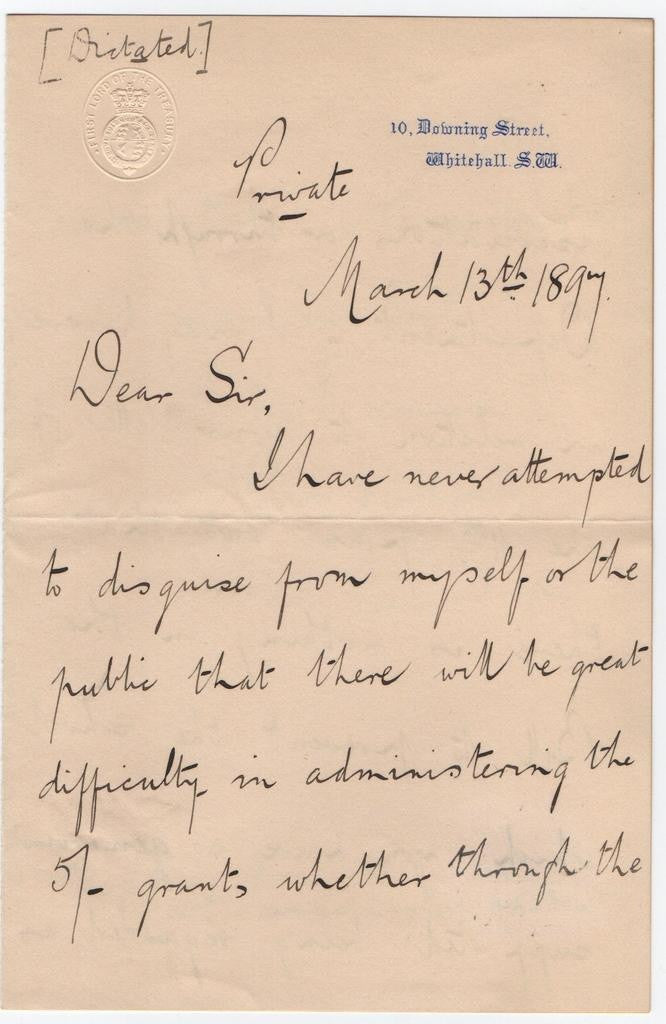 [Dictated.]
FIRST LORD OF THE TREASURY
10, Downing Street,
Whitehall. S.W.
Private
March 13th 1897.
Dear Sir,
I have never attempted
to disguise from myself or the
public that there will be great
difficulty in administering the
5/- grant, whether through the